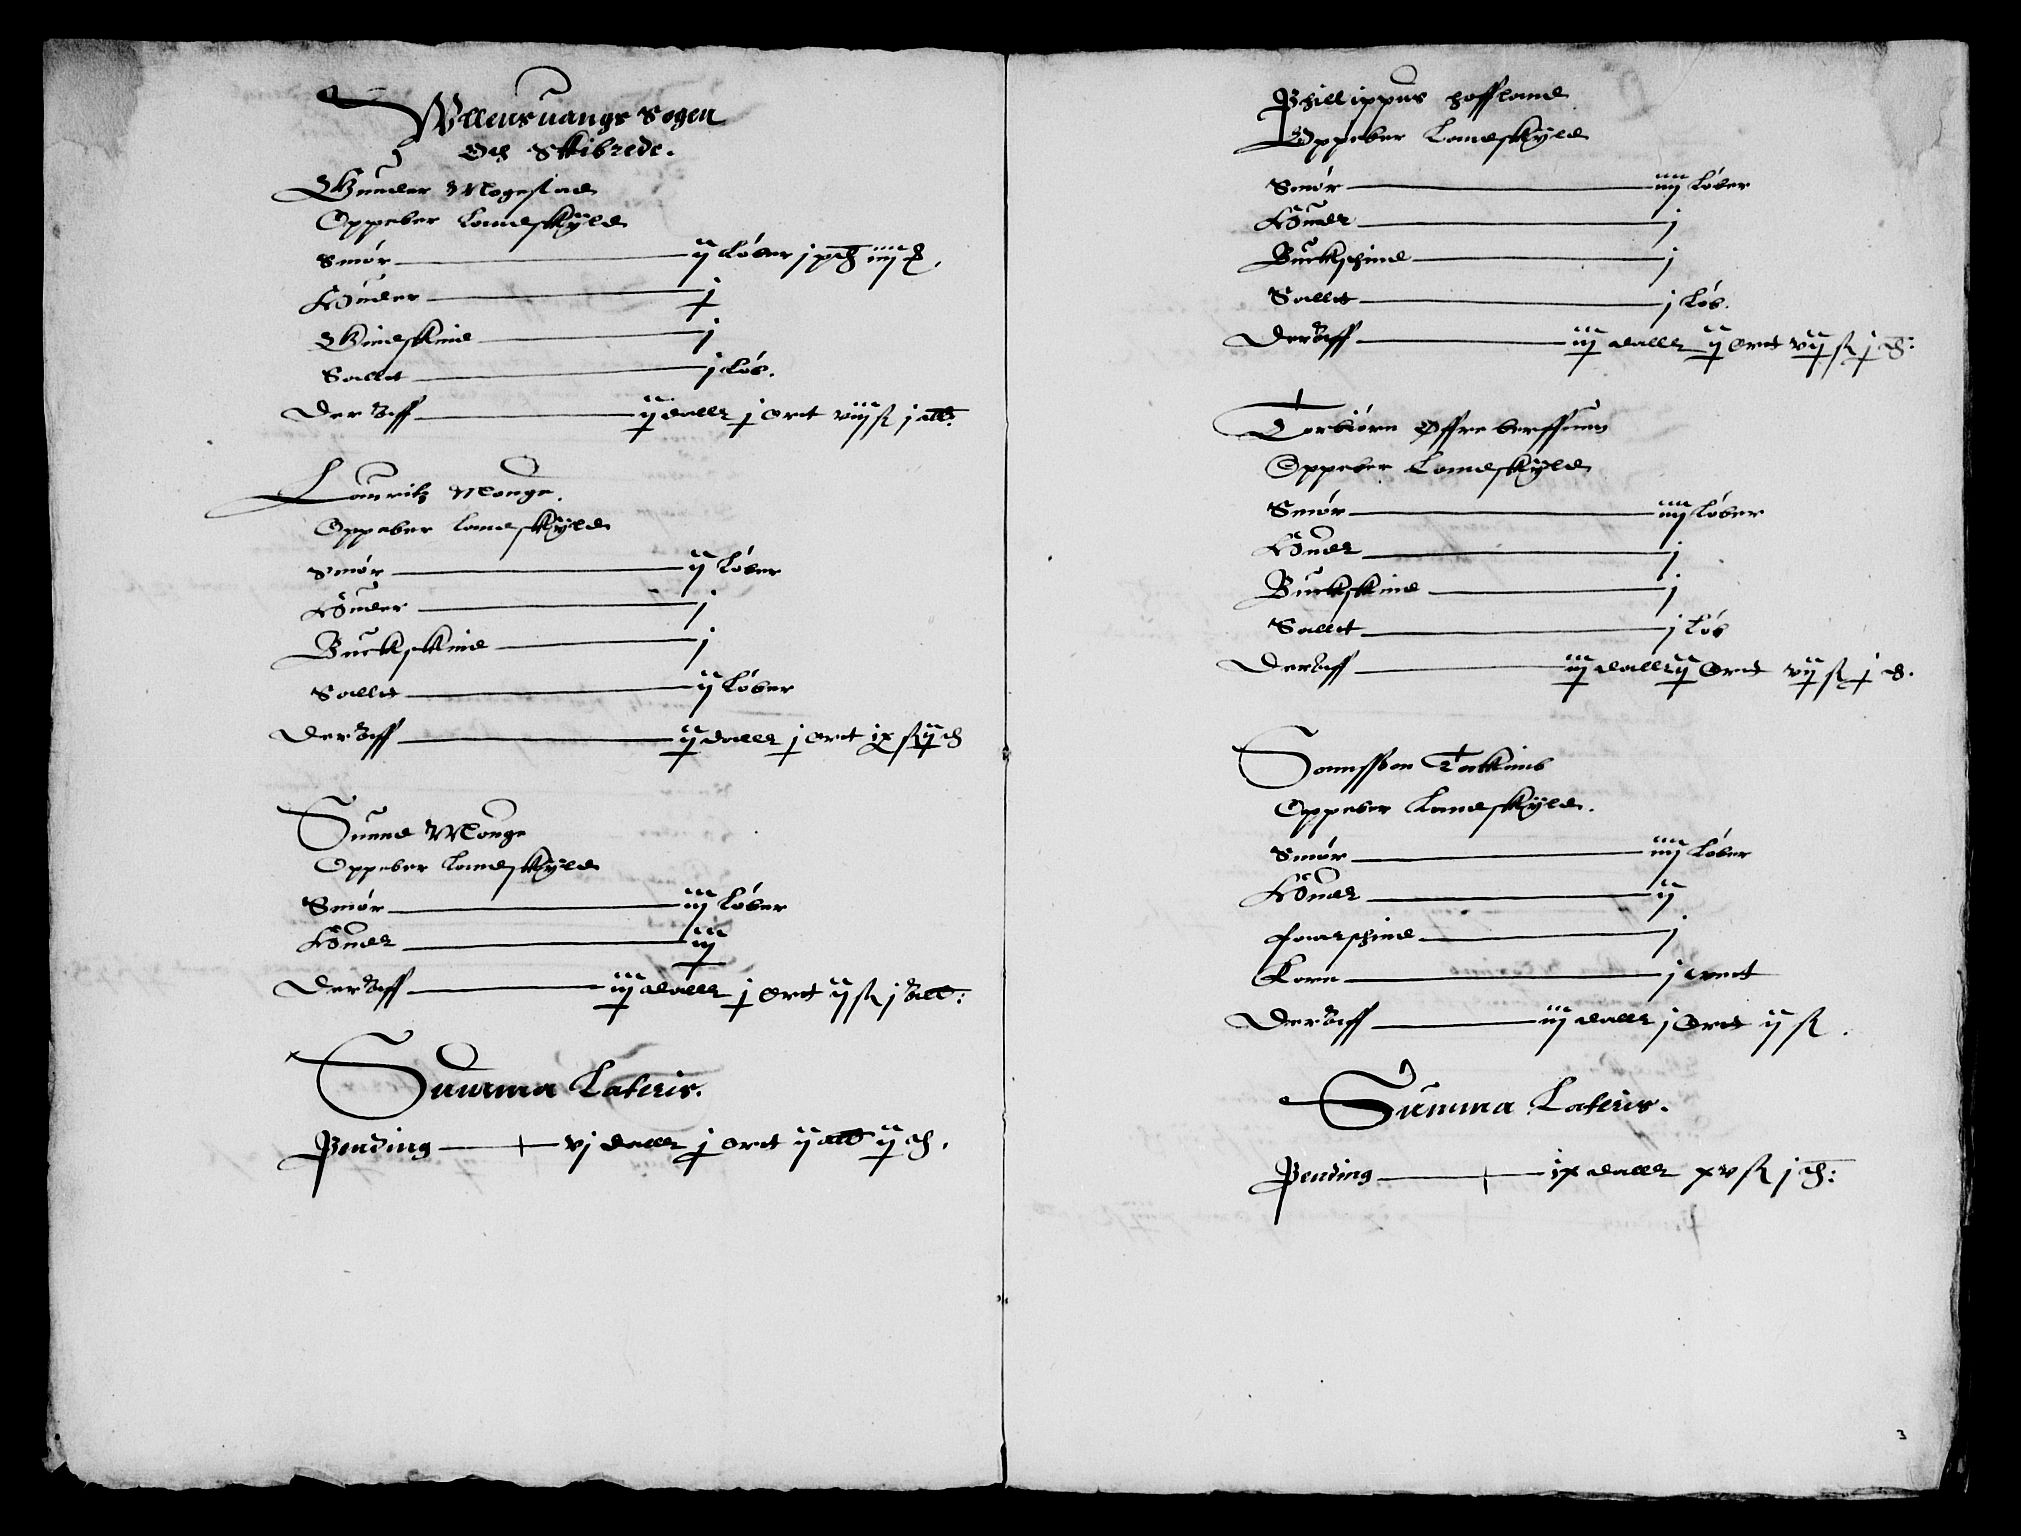 Wllensuangs Sogen
Och Skibrede.
Gunder Mogestad
Oppeber Landskyld
Smør ij Løber j pd iiij
Huder j
Giedskind j
Sallt j Løb.
Der aff ij daller j ort viij ß j alb:
Lauritz Monge.
Oppeber Landskyld
Smør ij Løber
Huder j
Buckskind j
Sallt ij Løber
Der aff ij daller j ort ix ß ij d
Suend Monge
Oppeber Landskyld
Smør iij Løber
Huder iij
Der aff iij daller j ort ij ß j alb:
Summa Lateris.
Pending vj daller j ort ij alb ij d.
Phillippus Hoffland
Oppeber Landskyld
Smør iiij Løber
Huder j
Buckschind j
Sallt j Løb.
Der aff iij daller ij ort vij ß j d:
Torbiørn
Oppeber Landskyld
Smør iiij Løber
Huder j
Buckskind j
Sallt j Løb
Der aff iij daller ij Ort vij ß j d.
Oppeber Landskyld.
Smør iiij Løber
Huder ij
Faarschind j
Korn j
Der aff iij daller j Ort ij ß.
Summa Lateris.
Pending ix daller xv ß j d:
3